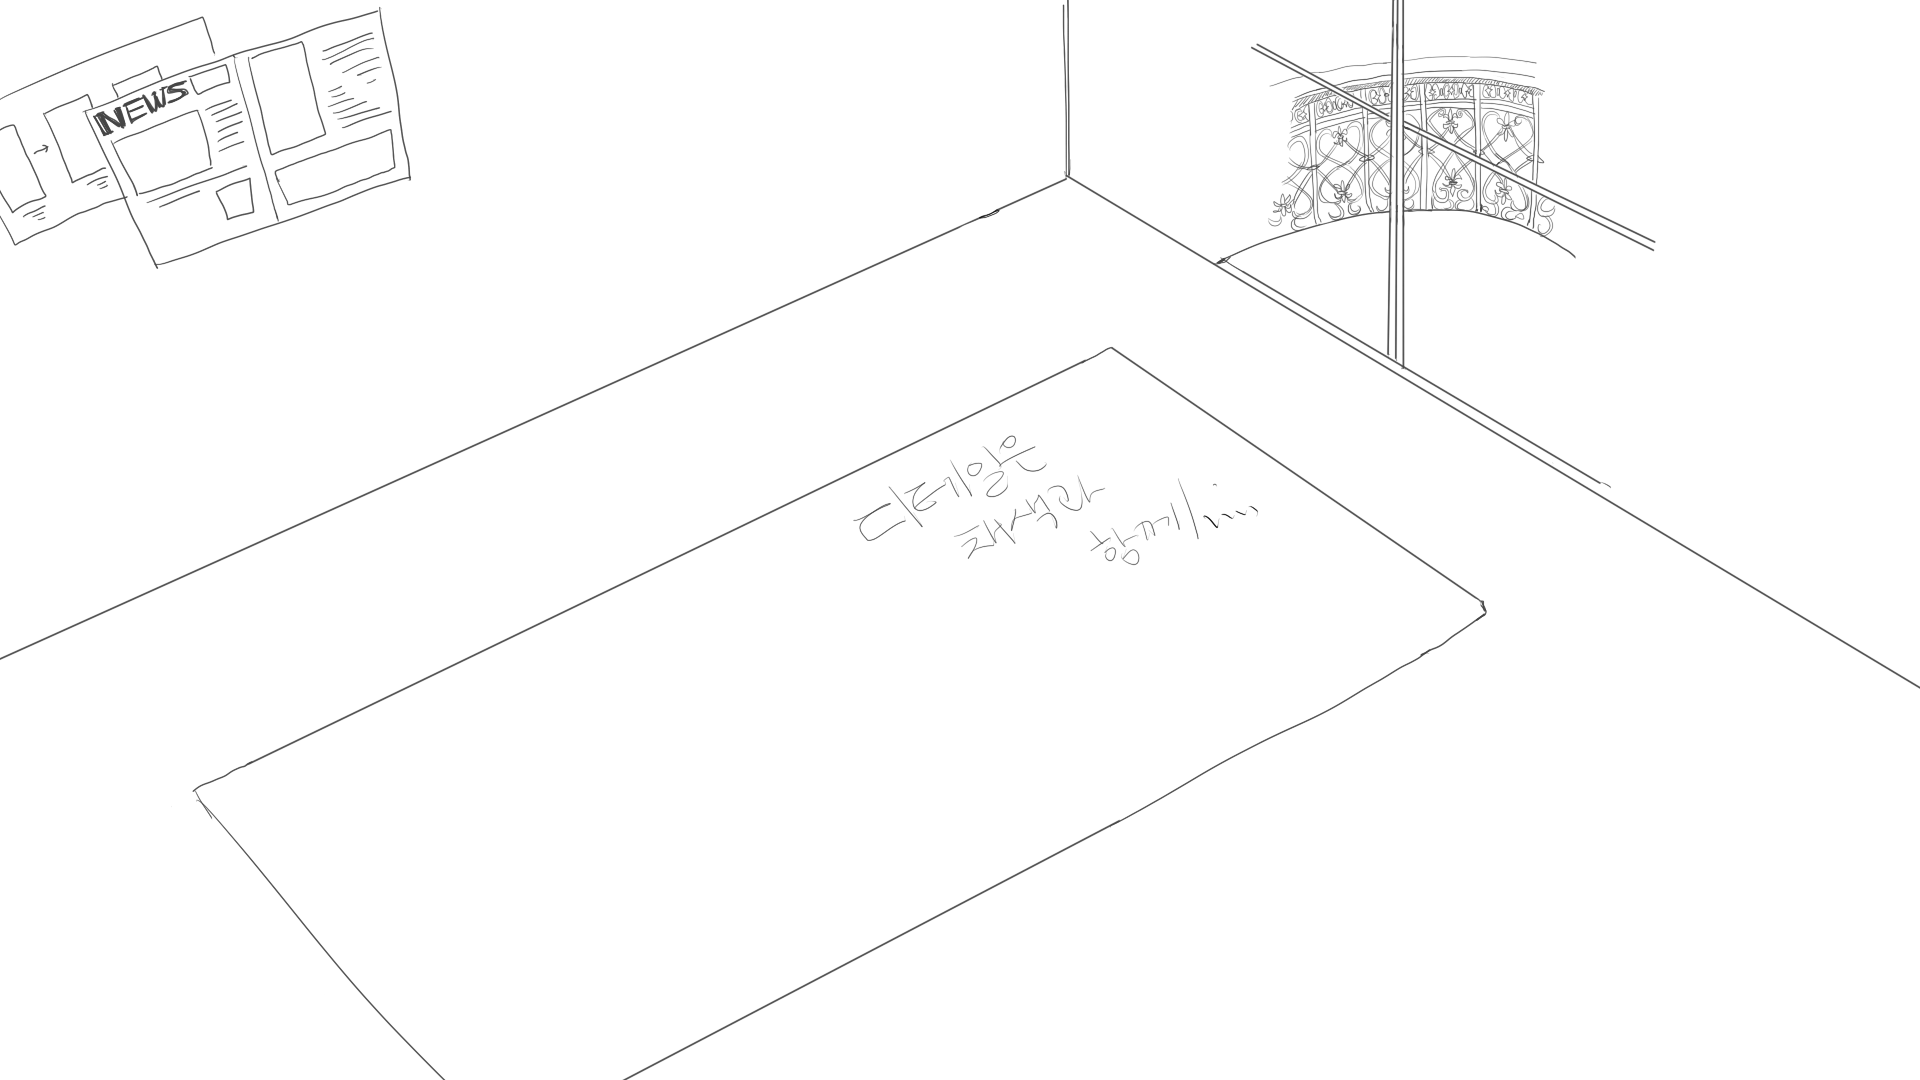 NEWS
디테일은
채색과
함께!